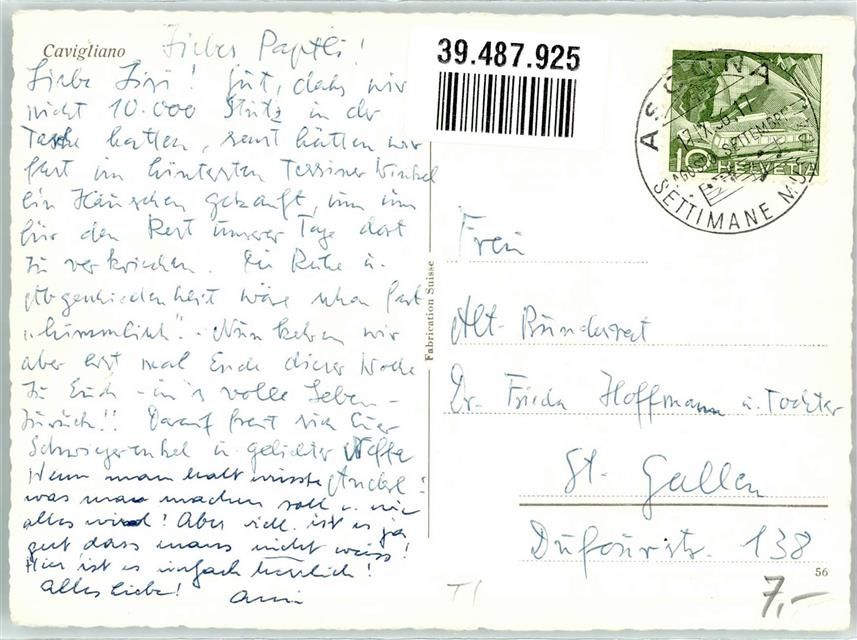 Cavigliano
Liebes Paptli!
Liebe Sisi! Gut, dass wir
nicht 10.000 Stutz in der
Tasche hatten, sonst hätten wir
fast im hintersten Tessiner Winkel
ein Häuschen gekauft, um uns
für den Rest unserer Tage dort
zu verkriechen. Die Ruhe u.
Abgeschiedenheit wäre schon fast
"himmlisch". - Nun kehren wir
aber erst mal Ende dieser Woche
zu Euch - in's volle Leben -
zurück!! Darauf freut sich Euer
Schwiegerenkel u. geliebter Neffe
Wenn man halt wüsste
was man machen soll u. wie
alles wird! Aber viell. ist es ja
gut dass mans nicht weiss!
Hier ist es einfach herrlich!
Alles Liebe!
39.487.925
Fabrication Suisse
ASCONA
SETTIMANE
10 HELVETIA
Frau
Alt-Bundesrat
Dr. Frieda Hoffmann u. Tochter
St. Gallen
Dufourstr. 138
56
7,-